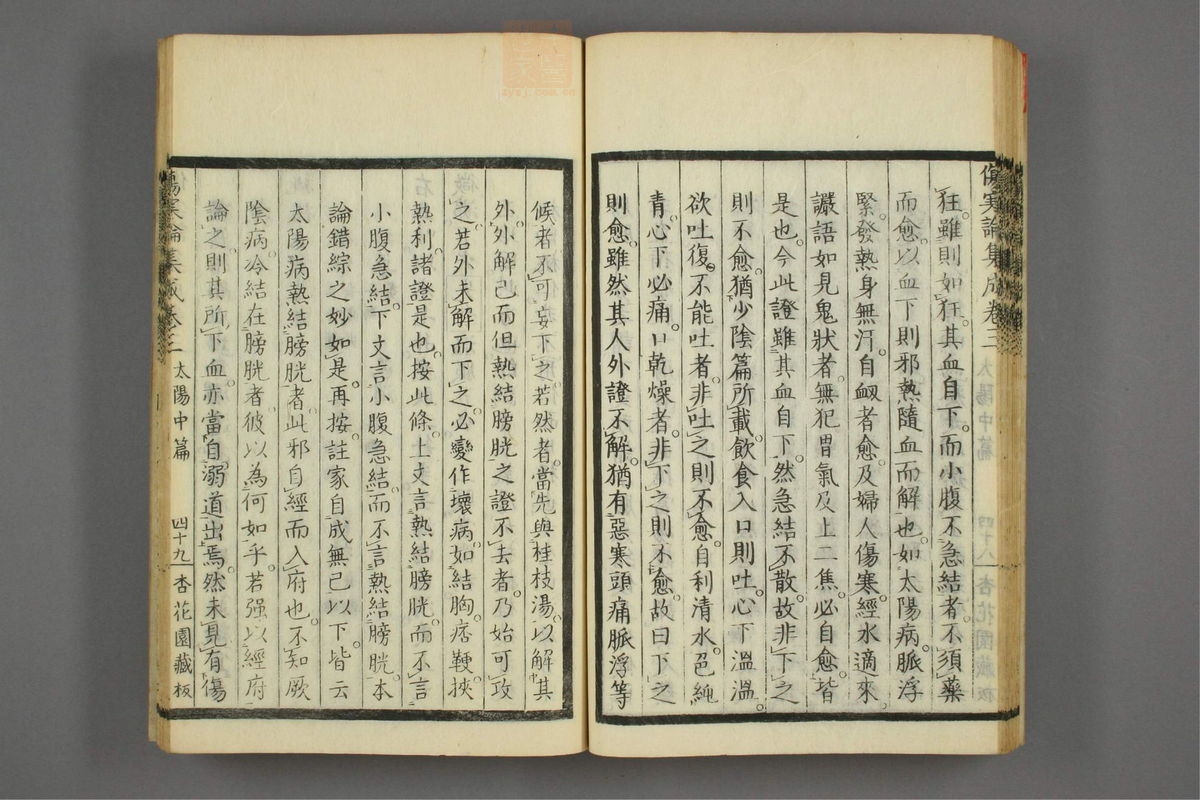 傷寒論集成卷三
狂雖則如狂其血自下而小腹不急結者不須藥
而愈以血下則邪熱隨血而解也如太陽病脈浮
緊發熱身無汗自衂者愈及婦人傷寒經水適來
讝語如見鬼狀者無犯胃氣及上二焦必自愈皆
是也今此證雖其血自下然急結不散故非下之
則不愈猶少陰篇所載飲食入口則吐心下溫溫
欲吐復不能吐者非吐之則不愈自利清水色純
青心下必痛口乾燥者非下之則不愈故曰下之
則愈雖然其人外證不解猶有惡寒頭痛脈浮等
候者不可妄下之若然者當先與桂枝湯以解其
外外解已而但熱結膀胱之證不去者乃始可攻
之若外未解而下之必變作壞病如結胸痞鞕挾
熱利諸證是也按此條上文言熱結膀胱而不言
小腹急結下文言小腹急結而不言熱結膀胱本
論錯綜之妙如是再按註家自成無己以下皆云
太陽病熱結膀胱者此邪自經而入府也不知厥
陰病冷結在膀胱者彼以為何如乎若强以經府
論之則其所下血亦當自溺道出焉然未見有傷
傷寒論集成卷三 太陽中篇 四十九 杏花園藏板
zysj.com.cn